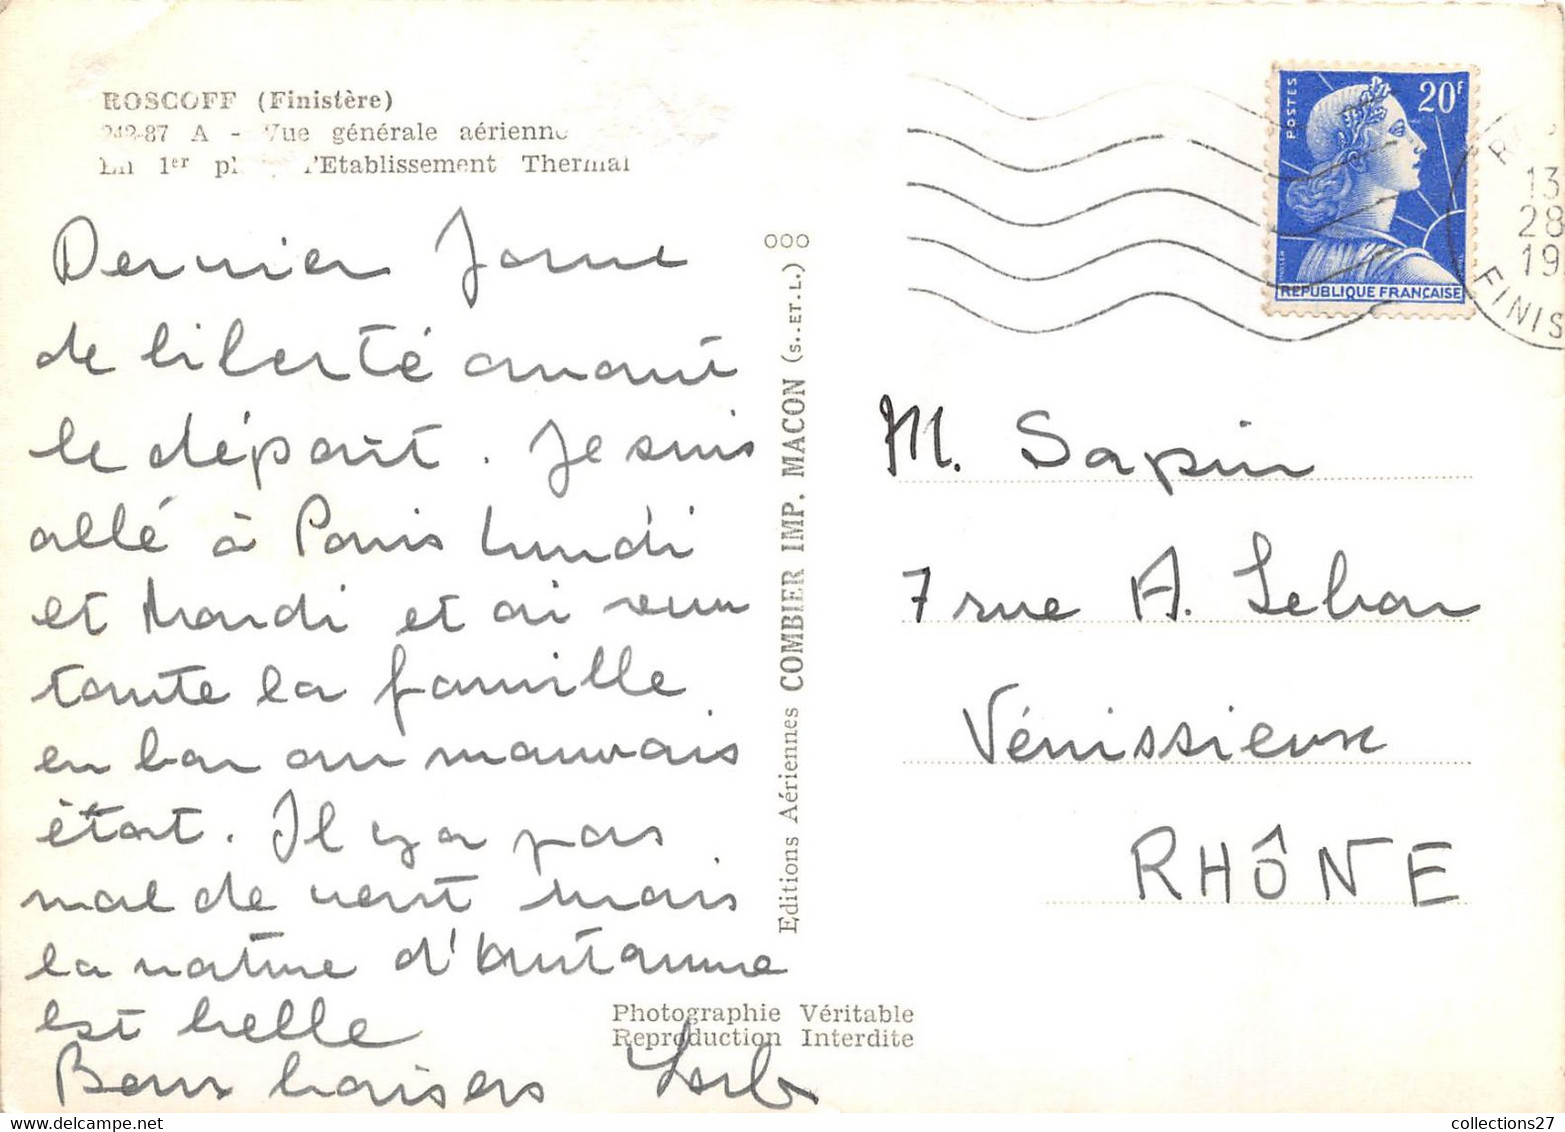 ROSCOFF (Finistère)
242-87 A - Vue générale aérienne
En 1er pl l'Etablissement Thermal
Dernier Jour
de liberté avant
le départ. Je suis
allé à Paris Lundi
et Mardi et ai revu
toute la famille
en bon ou mauvais
état. Il y a pas
mal de vent mais
la nature d'Automne
est belle
Bons baisers
Editions Aériennes COMBIER IMP. MACON (S.-ET-L.) OOO
Photographie Véritable
Reproduction Interdite
POSTES
20F
REPUBLIQUE FRANÇAISE
13
28
19
FINIS
M. Sapin
7 rue A. Lebon
Vénissieux
RHÔNE
collections27